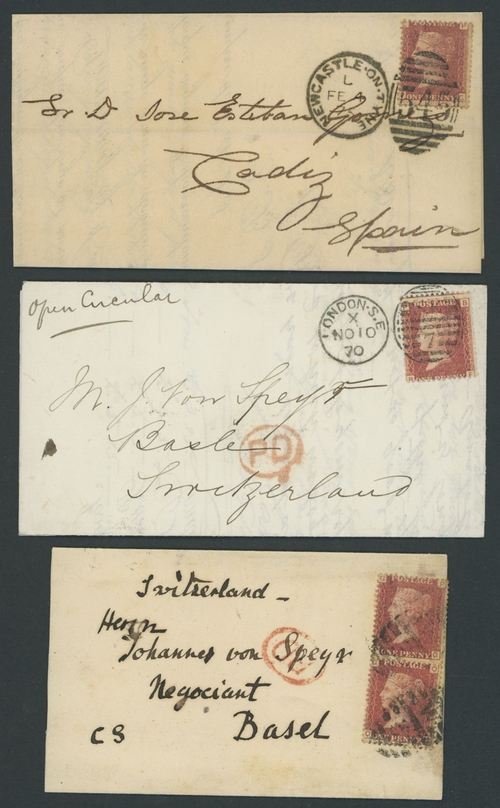 NEWCASTLE-ON-TYNE
L
FE 4
ONE PENNY
Sr D Jose Esteban Gomez
Cadiz
Spain
Open Circular
LONDON.S.E
X
NO 10
70
POSTAGE
M. J. Von Speyr
Basle
PD
Switzerland
Switzerland -
Herrn
Johannes von Speyr
PD
Negociant
CS Basel
POSTAGE
ONE PENNY
POSTAGE
ONE PENNY